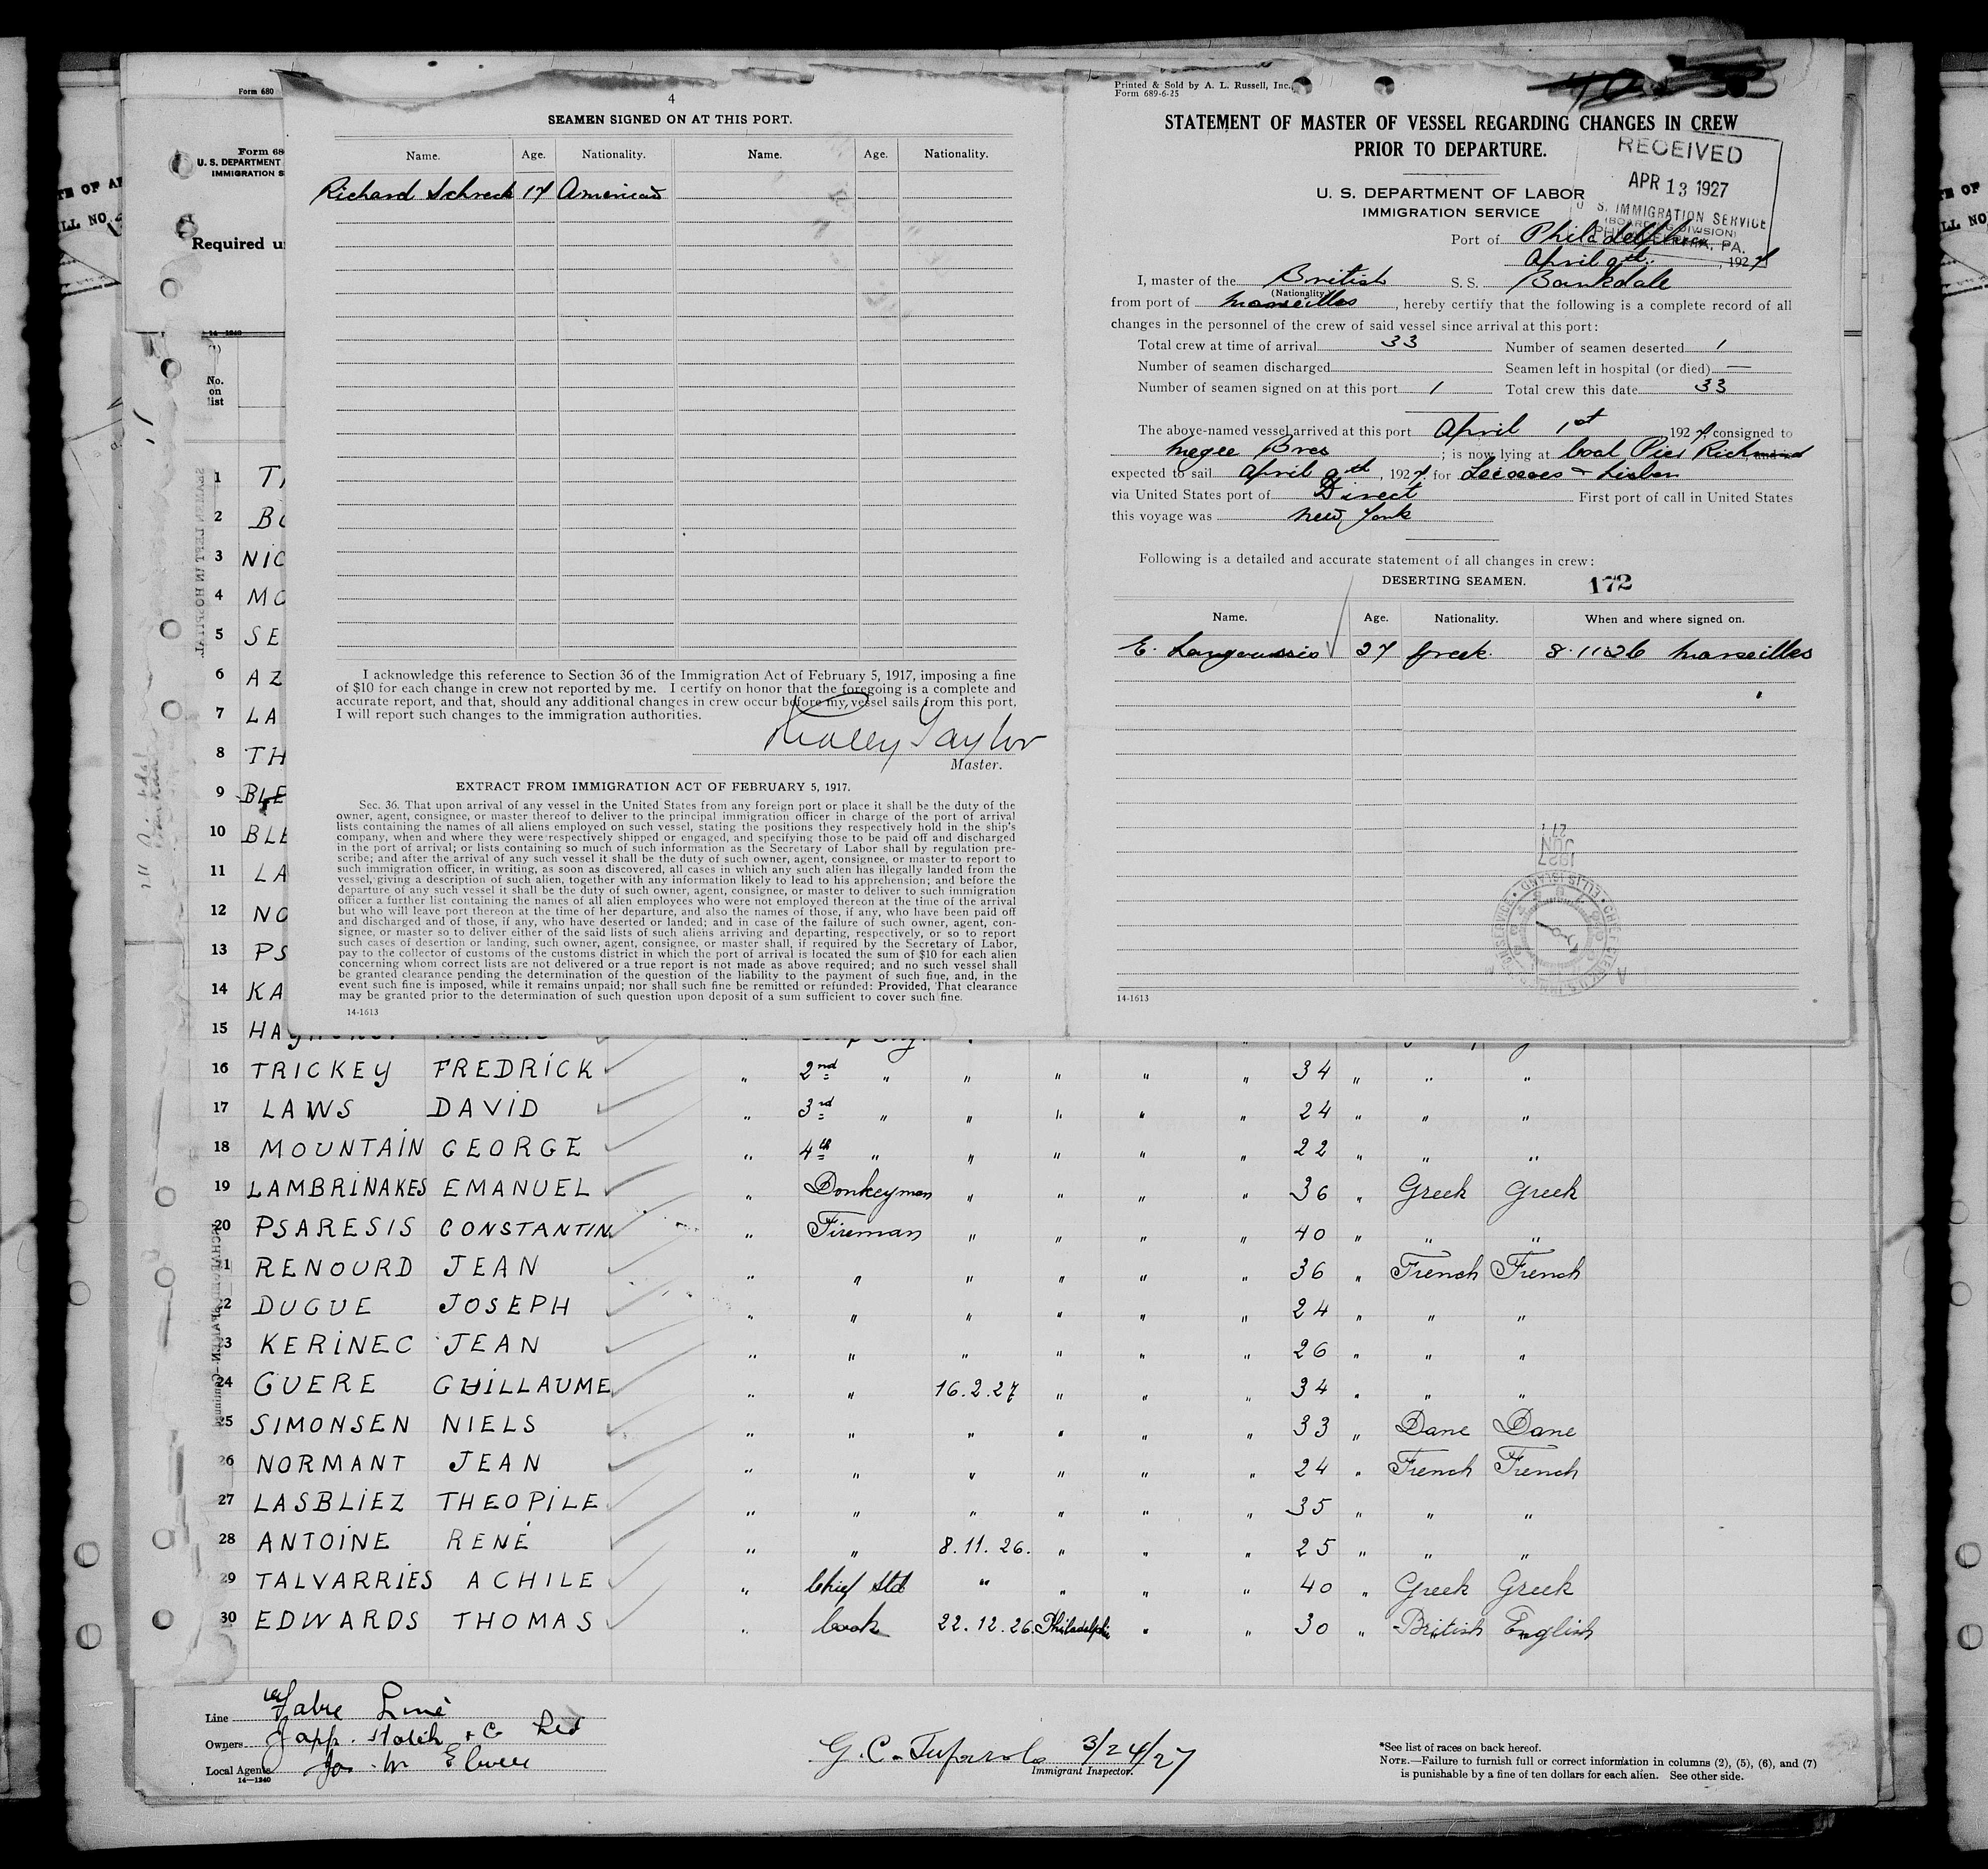 Form 680
Form 68
U. S. DEPARTMENT
IMMIGRATION S
Required u
14-1240
No.
on
list
4
SEAMEN SIGNED ON AT THIS PORT.
Name. Age. Nationality. Name. Age. Nationality.
Richard Schreck 17 American
I acknowledge this reference to Section 36 of the Immigration Act of February 5, 1917, imposing a fine
of $10 for each change in crew not reported by me. I certify on honor that the foregoing is a complete and
accurate report, and that, should any additional changes in crew occur before my vessel sails from this port,
I will report such changes to the immigration authorities.
Ridley Taylor
Master.
EXTRACT FROM IMMIGRATION ACT OF FEBRUARY 5, 1917.
Sec. 36. That upon arrival of any vessel in the United States from any foreign port or place it shall be the duty of the
owner, agent, consignee, or master thereof to deliver to the principal immigration officer in charge of the port of arrival
lists containing the names of all aliens employed on such vessel, stating the positions they respectively hold in the ship's
company, when and where they were respectively shipped or engaged, and specifying those to be paid off and discharged
in the port of arrival; or lists containing so much of such information as the Secretary of Labor shall by regulation pre-
scribe; and after the arrival of any such vessel it shall be the duty of such owner, agent, consignee, or master to report to
such immigration officer, in writing, as soon as discovered, all cases in which any such alien has illegally landed from the
vessel, giving a description of such alien, together with any information likely to lead to his apprehension; and before the
departure of any such vessel it shall be the duty of such owner, agent, consignee, or master to deliver to such immigration
officer a further list containing the names of all alien employees who were not employed thereon at the time of the arrival
but who will leave port thereon at the time of her departure, and also the names of those, if any, who have been paid off
and discharged and of those, if any, who have deserted or landed; and in case of the failure of such owner, agent, con-
signee, or master so to deliver either of the said lists of such aliens arriving and departing, respectively, or so to report
such cases of desertion or landing, such owner, agent, consignee, or master shall, if required by the Secretary of Labor,
pay to the collector of customs of the customs district in which the port of arrival is located the sum of $10 for each alien
concerning whom correct lists are not delivered or a true report is not made as above required; and no such vessel shall
be granted clearance pending the determination of the question of the liability to the payment of such fine, and, in the
event such fine is imposed, while it remains unpaid; nor shall such fine be remitted or refunded: Provided, That clearance
may be granted prior to the determination of such question upon deposit of a sum sufficient to cover such fine.
14-1613
Printed & Sold by A. L. Russell, Inc.,
Form 689-6-25
STATEMENT OF MASTER OF VESSEL REGARDING CHANGES IN CREW
PRIOR TO DEPARTURE.
RECEIVED
APR 13 1927
U. S. IMMIGRATION SERVICE
(BOARDING DIVISION)
PHILADELPHIA, PA.
U. S. DEPARTMENT OF LABOR
IMMIGRATION SERVICE
Port of Philadelphia
April 9th, 1927
I, master of the British S. S. Bankdale
(Nationality)
from port of Marseilles, hereby certify that the following is a complete record of all
changes in the personnel of the crew of said vessel since arrival at this port:
Total crew at time of arrival 33 Number of seamen deserted 1
Number of seamen discharged Seamen left in hospital (or died) —
Number of seamen signed on at this port 1 Total crew this date 33
The above-named vessel arrived at this port April 1st 1927, consigned to
Megee Bros ; is now lying at Coal Pier Richmond, and is
expected to sail April 9th, 1927, for Leixoes & Lisbon
via United States port of Direct First port of call in United States
this voyage was New York
Following is a detailed and accurate statement of all changes in crew:
DESERTING SEAMEN. 172
Name. Age. Nationality. When and where signed on.
E. Langoussis 27 Greek. 8.11.26 Marseilles
14-1613
1 T
2 BO
3 NIC
4 MO
5 SE
6 AZ
7 LA
8 TH
9 BLE
10 BLE
11 LA
12 NO
13 PS
14 KA
15 HA
16 TRICKEY FREDRICK " 2nd " " " " " 34 " " "
17 LAWS DAVID " 3rd " " " " " 24 " " "
18 MOUNTAIN GEORGE " 4th " " " " " 22 " " "
19 LAMBRINAKES EMANUEL " Donkeyman " " " " 36 " Greek Greek
20 PSARESIS CONSTANTIN " Fireman " " " " 40 " " "
21 RENOURD JEAN " " " " " " 36 " French French
22 DUGUE JOSEPH " " " " " " 24 " " "
23 KERINEC JEAN " " " " " " 26 " " "
24 GUERE GUILLAUME " " 16.2.27 " " " 34 " " "
25 SIMONSEN NIELS " " " " " " 33 " Dane Dane
26 NORMANT JEAN " " " " " " 24 " French French
27 LASBLIEZ THEOPILE " " " " " " 35 " " "
28 ANTOINE RENÉ " " 8.11.26. " " " 25 " " "
29 TALVARRIES ACHILE " Chief Std " " " " 40 " Greek Greek
30 EDWARDS THOMAS " Cook 22.12.26. Philadelphia " " 30 " British English
Line Fabre Line
Owners
Local Agents Jas. W. Elwell
14-1240
3/24/27
Immigrant Inspector.
*See list of races on back hereof.
NOTE.—Failure to furnish full or correct information in columns (2), (5), (6), and (7)
is punishable by a fine of ten dollars for each alien. See other side.